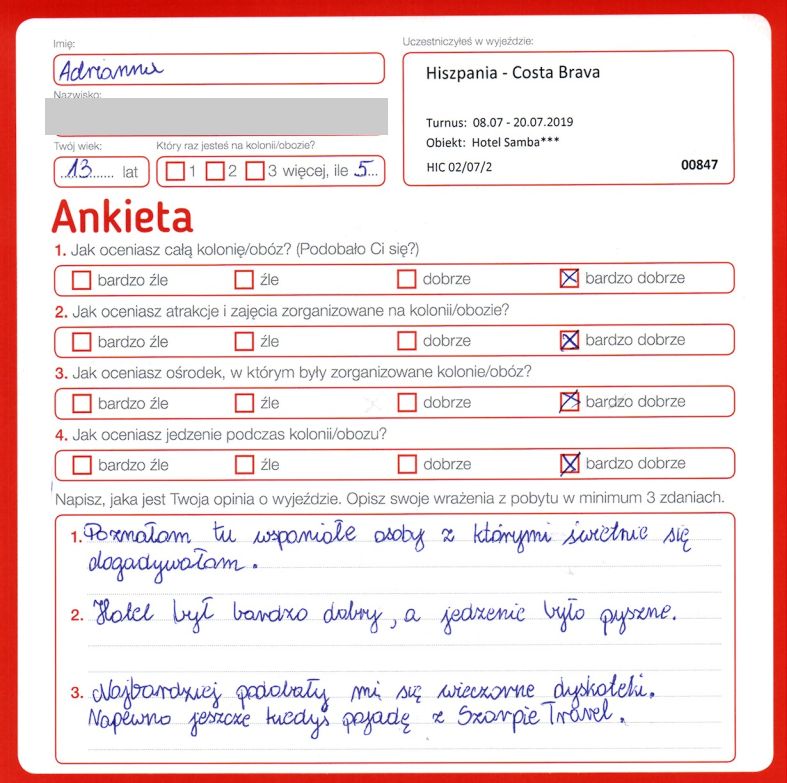 Imię:
Adrianna
Nazwisko:
Twój wiek:
13 lat
Który raz jesteś na kolonii/obozie?
1 2 3 więcej, ile 5
Uczestniczyłeś w wyjeździe:
Hiszpania - Costa Brava
Turnus: 08.07 - 20.07.2019
Obiekt: Hotel Samba***
HIC 02/07/2 00847
Ankieta
1. Jak oceniasz całą kolonię/obóz? (Podobało Ci się?)
bardzo źle źle dobrze bardzo dobrze
2. Jak oceniasz atrakcje i zajęcia zorganizowane na kolonii/obozie?
bardzo źle źle dobrze bardzo dobrze
3. Jak oceniasz ośrodek, w którym były zorganizowane kolonie/obóz?
bardzo źle źle dobrze bardzo dobrze
4. Jak oceniasz jedzenie podczas kolonii/obozu?
bardzo źle źle dobrze bardzo dobrze
Napisz, jaka jest Twoja opinia o wyjeździe. Opisz swoje wrażenia z pobytu w minimum 3 zdaniach.
1. Poznałam tu wspaniałe osoby z którymi świetnie się
dogadywałam.
2. Hotel był bardzo dobry, a jedzenie było pyszne.
3. Najbardziej podobały mi się wieczorne dyskoteki.
Napewno jeszcze kiedyś pojadę z Szarpie Travel.